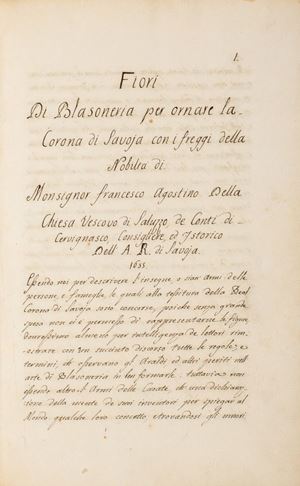 1.
Fiori
Di Blasoneria per ornare la
Corona di Savoja con i freggi della
Nobiltà di
Monsignor francesco Agostino Della
Chiesa Vescovo di Saluzzo de Conti di
Cervignasco, Consigliere, ed Istorico
Dell' A. R. di Savoja.
1655.
Essendo noi per descrivere l'insegne, o sian Armi delle
persone, e famiglie, le quali alla tessitura della Real
Corona di Savoja sono concorse, poiche senza grande
spesa non ci è permesso di rappresentarne le figure
douressimo almeno per intelligenza de lettori dim-
ostrare con un succinto discorso tutte le regole, e
termini, ch'osservano gl'Araldi ed altri periti nell'
arte di Blasoneria in ben formarle: tuttavia non
essendo altro l'Armi delle Casate, ch'una dichiara-
zione della mente de suoi inventori per spiegar al
Mondo qualche loro concetto, e trovandosi gl'umori